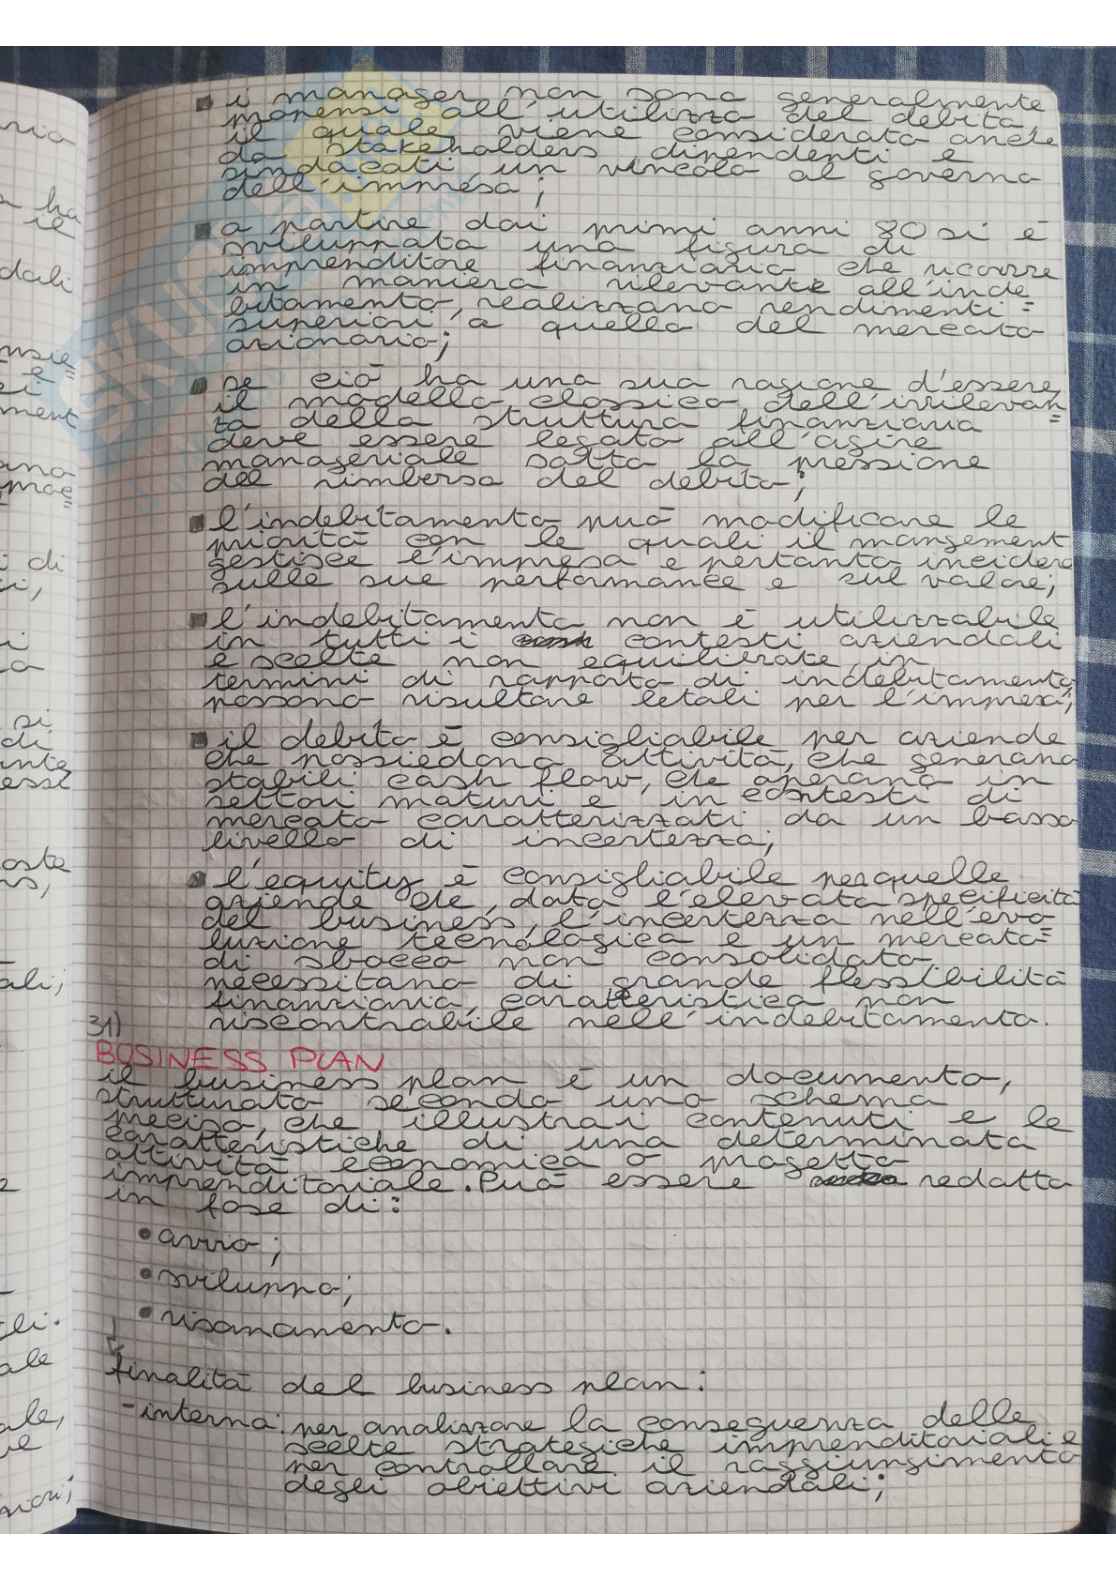 ▪ i manager non sono generalmente
propensi all'utilizzo del debito,
il quale viene considerato anche
da stakeholders dipendenti e
sindacati un vincolo al governo
dell'impresa;
▪ a partire dai primi anni 80 si è
sviluppata una figura di
imprenditore finanziario che ricorre
in maniera rilevante all'inde
bitamento, realizzano rendimenti =
superiori a quello del mercato
azionario;
▪ se ciò ha una sua ragione d'essere,
il modello classico dell'irrilevan
ta della struttura finanziaria =
deve essere legato all'agire
manageriale sotto la pressione
del rimborso del debito;
▪ l'indebitamento può modificare le
priorità con le quali il management
gestisce l'impresa e pertanto incidere
sulle sue performance e sul valore;
▪ l'indebitamento non è utilizzabile
in tutti i contesti aziendali
e scelte non equilibrate, in
termini di rapporto di indebitamento
possono risultare letali per l'impresa;
▪ il debito è consigliabile per aziende
che possiedono attività, che generano
stabili cash flow, che operano in
settori maturi e in contesti di
mercato caratterizzati da un basso
livello di incertezza;
▪ l'equity è consigliabile per quelle
aziende che, data l'elevata specificità
del business, l'incertezza nell'evo
luzione tecnologica e un mercato =
di sbocco non consolidato,
necessitano di grande flessibilità
finanziaria, caratteristica non
riscontrabile nell'indebitamento.
31)
BUSINESS PLAN
il business plan è un documento,
strutturato secondo uno schema
preciso, che illustra i contenuti e le
caratteristiche di una determinata
attività economica o progetto
imprenditoriale. Può essere redatto
in fase di:
• avvio;
• sviluppo;
• risanamento.
finalità del business plan:
- interna: per analizzare la conseguenza delle
scelte strategiche imprenditoriali e
per controllare il raggiungimento
degli obiettivi aziendali;